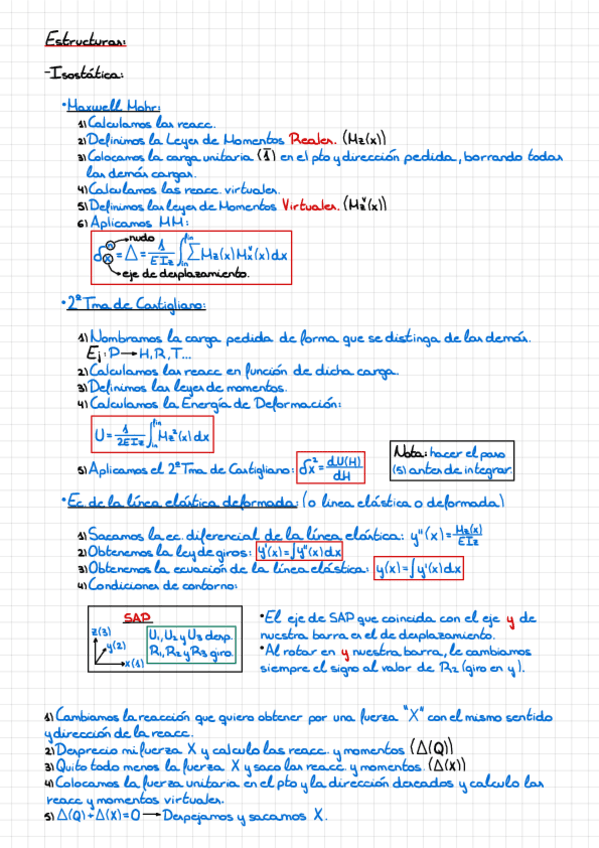 Estructuras:
-Isostática:
•Maxwell Mohr:
1) Calculamos las reacc.
2) Definimos la Leyes de Momentos Reales. (Mz(x))
3) Colocamos la carga unitaria (1̄) en el pto y dirección pedida, borrando todas
las demás cargas.
4) Calculamos las reacc. virtuales.
5) Definimos las leyes de Momentos Virtuales. (Mzᵛ(x))
6) Aplicamos MM:
nudo
= Δ = 1/EIz ∫ᵢₙᶠⁱⁿ ∑Mz(x)Mxᵛ(x)dx
eje de desplazamiento.
•2º Tma de Castigliano:
1) Nombramos la carga pedida de forma que se distinga de las demás.
Ej: P→H,R,T...
2) Calculamos las reacc en función de dicha carga.
3) Definimos las leyes de momentos.
4) Calculamos la Energía de Deformación:
U = 1/2EIz ∫ᵢₙᶠⁱⁿ Mz²(x)dx
Nota: hacer el paso
(5) antes de integrar.
5) Aplicamos el 2º Tma de Castigliano: δx² = dU(H)/dH
•Ec. de la línea elástica deformada: (o línea elástica o deformada)
1) Sacamos la ec. diferencial de la línea elástica: y''(x) = Mz(x)/EIz
2) Obtenemos la ley de giros: y'(x) = ∫y''(x)dx
3) Obtenemos la ecuación de la línea elástica: y(x) = ∫y'(x)dx
4) Condiciones de contorno:
SAP
z(3)
y(2)
x(1)
U₁, U₂ y U₃ desp.
R₁, R₂ y R₃ giro.
•El eje de SAP que coincida con el eje y de
nuestra barra es el de desplazamiento.
•Al rotar en y nuestra barra, le cambiamos
siempre el signo al valor de R₂ (giro en y).
1) Cambiamos la reacción que quiero obtener por una fuerza "X" con el mismo sentido
y dirección de la reacc.
2) Desprecio mi fuerza X y calculo las reacc. y momentos (Δ(Q))
3) Quito todo menos la fuerza X y saco las reacc. y momentos. (Δ(X))
4) Colocamos la fuerza unitaria en el pto y la dirección deseados y calculo las
reacc y momentos virtuales.
5) Δ(Q)+Δ(X)=0 → Despejamos y sacamos X.